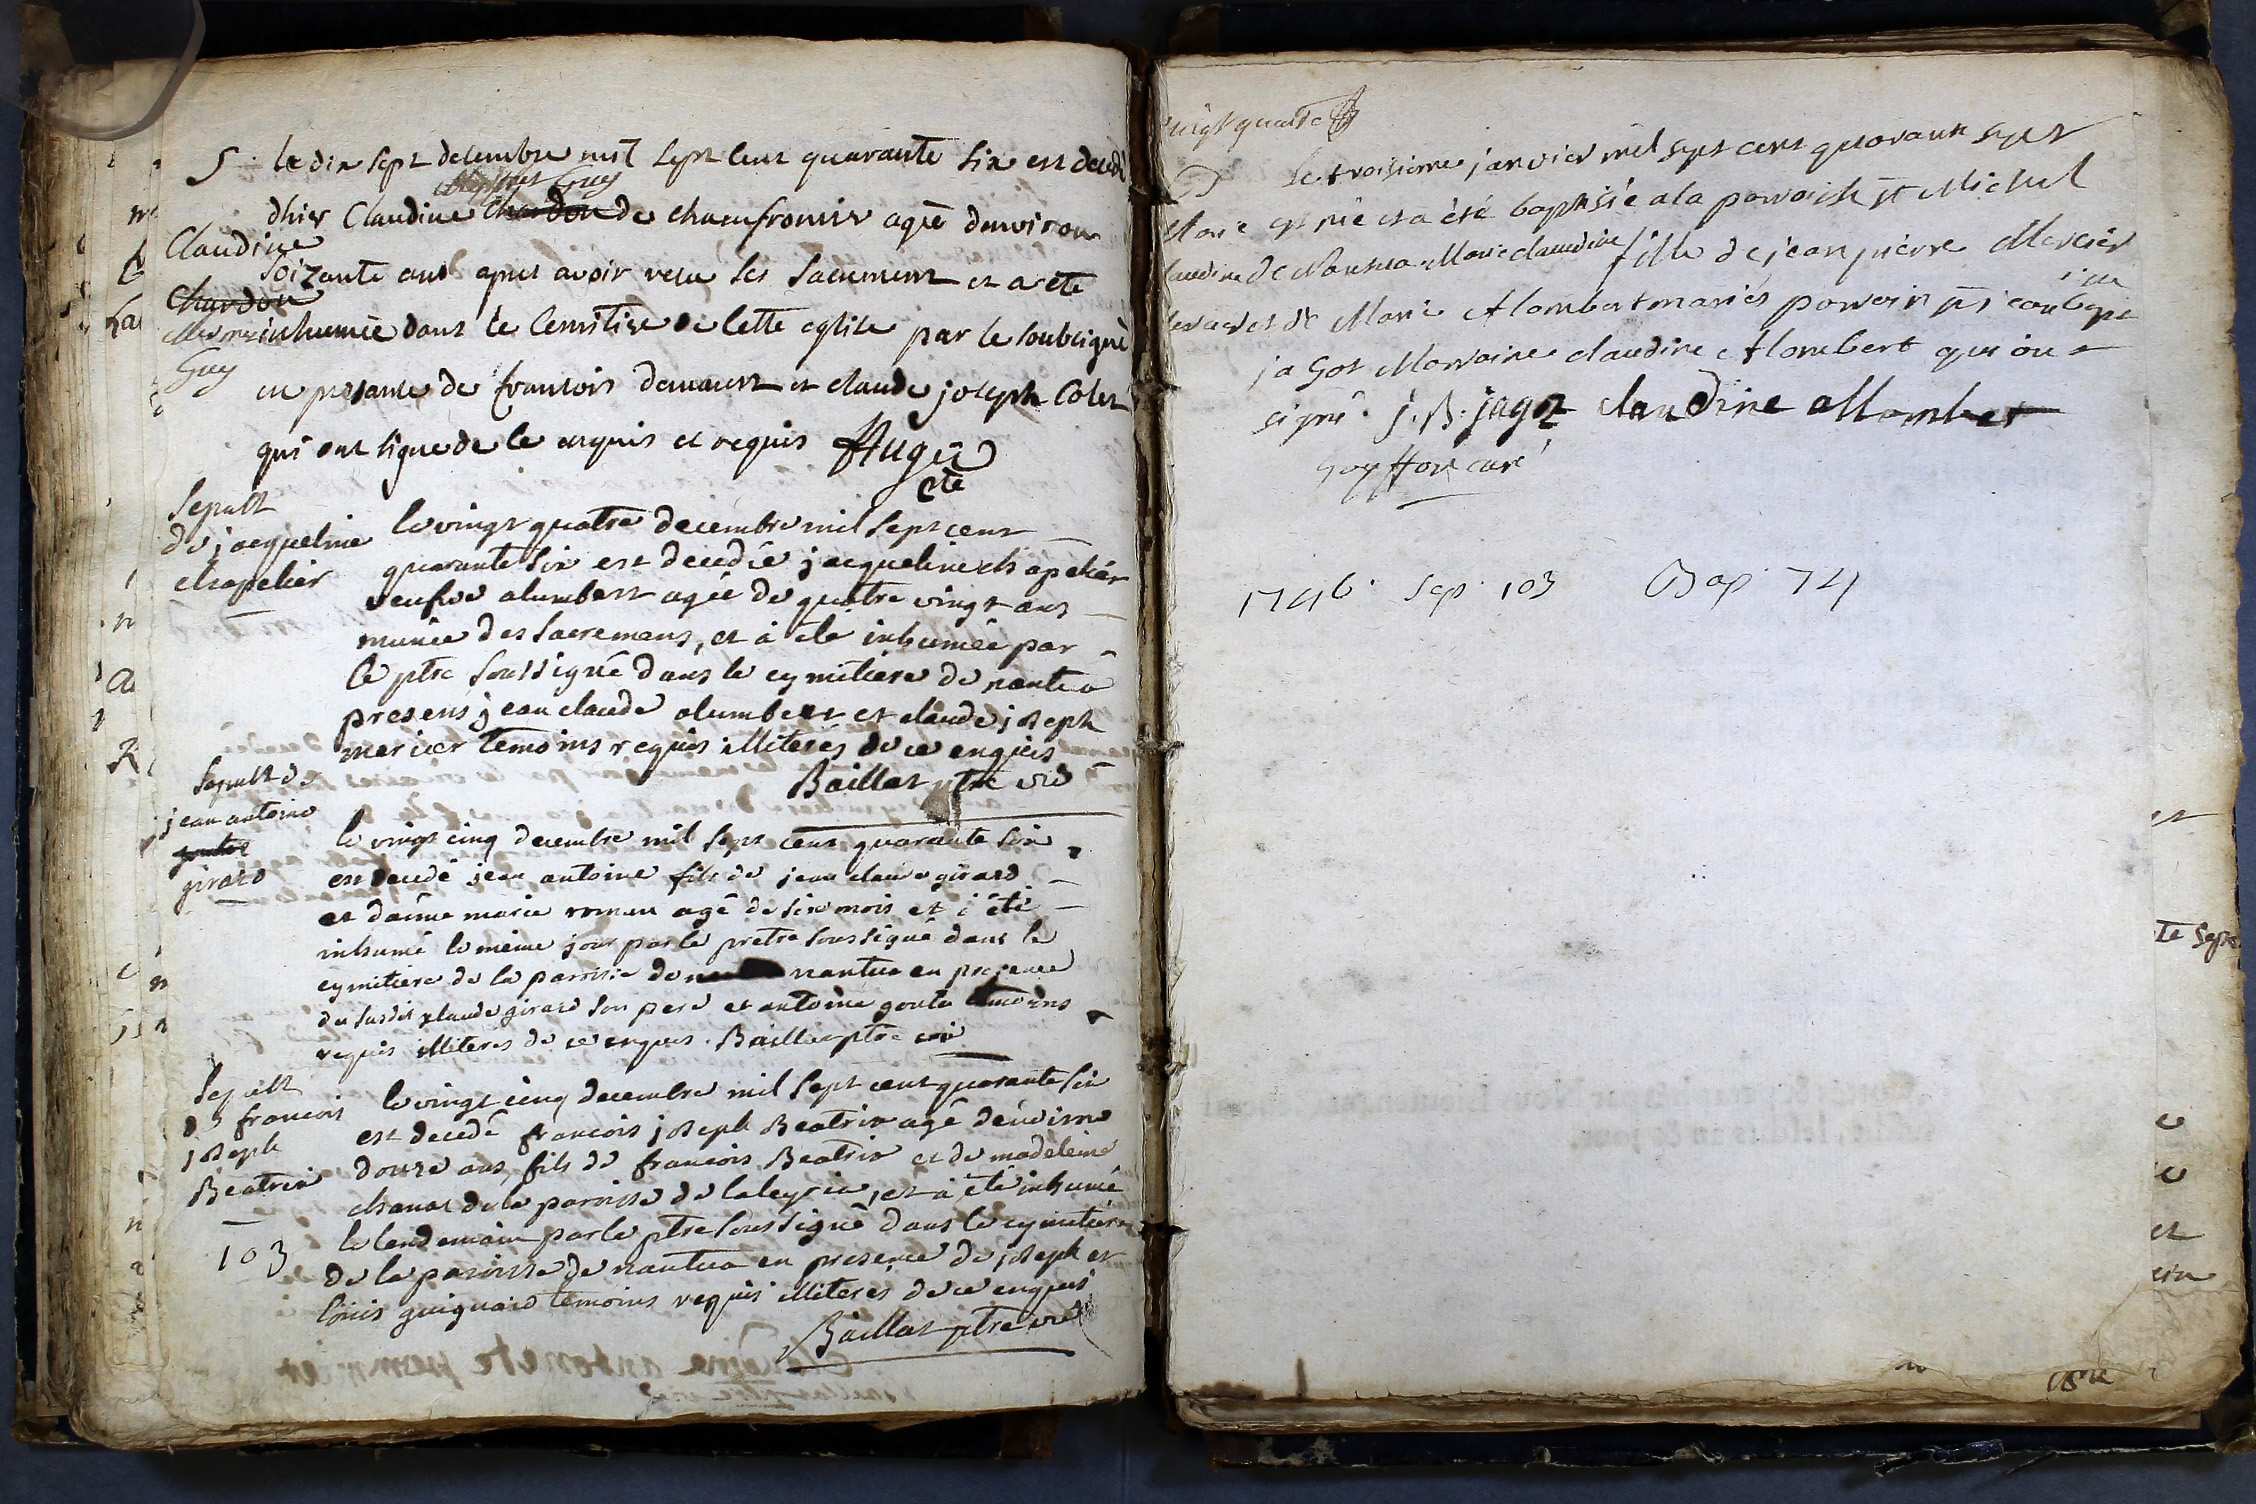 S. le dix sept decembre mil sept cent quarante six est decedé
Guy
dhier Claudine Chardon de Charfromier agée denviron
Claudine
soizante ans apres avoir recu les sacrements et a été
Chardon
inhumée dans le Cemitire de cette eglise par le soubsigné
Guy
en presance de francois demaurt et claude joseph Colet
qui ont signe de ce enquis et requis Auger
ctê
Sepult
de jacqueline
chapelier
le vingt quatre decembre mil sept cent
quarante six est decedée jacqueline chapelier
veufve alumbert agée de quatre vingt ans
munie des sacremens, et à été inhumée par
le ptre soussigné dans le cymitiere de nantua
presens jean claude alumbert et claude joseph
mercier temoins requis illiterés de ce enquis
Baillat ptre vic
Sepult de
jean antoine
goutte
girard
le vingt cinq decembre mil sept cent quarante six
est decedé jean antoine fils de jean claude girard
et daime marie romeu agé de six mois et à été
inhumé le même jour par le pretre soussigné dans le
cymitiere de la paroisse de nantua en presence
du susdit claude girard son pere et antoine goutte temoins
requis illiterés de ce enquis. Baillat ptre vic
Sepult
de francois
joseph
Beatrix
103
le vingt cinq decembre mil sept cent quarante six
est decedé francois joseph Beatrix agé denvirn
douze ans, fils de francois Beatrix et de madeleine
chanas de la paroisse de laleyria, et à été inhumé
le lendemain par le ptre soussigné dans le cymitiere
de la paroisse de nantua en presence de joseph et
louis guignard temoins requis illiterés de ce enquis
Baillat ptre vic
vingt quatre
Le troisieme janvier mil sept cent quarante sept
Marie est née et a été baptisée a la paroisse st Michel
de Nantua Marie claudine fille de jean pierre Mercier
et de Marie Alombert mariés parrain
jagot Marraine claudine Alombert qui ont
signé. j. B. jagot claudine allombert
Guyffon curé
1746. Sep. 103 Bap. 74
te sept